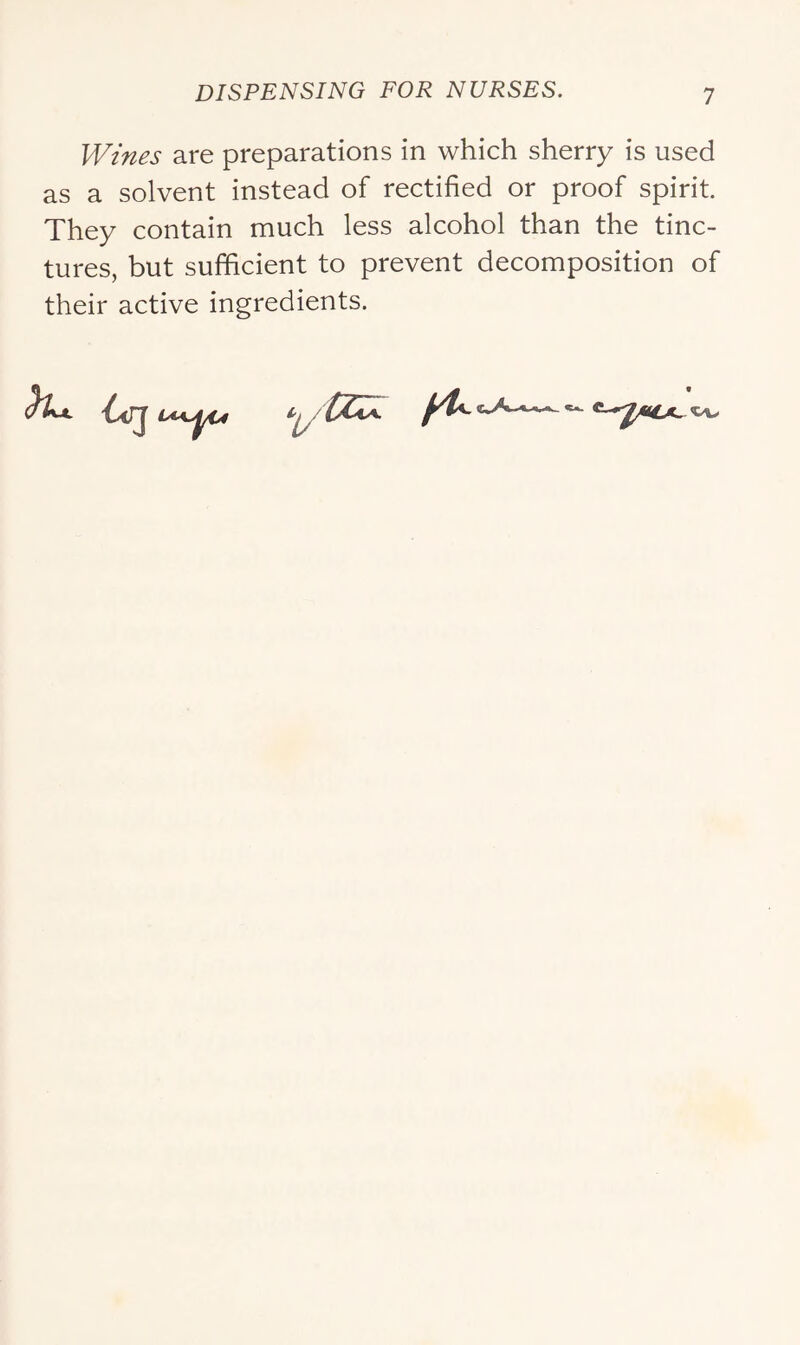 DISPENSING FOR NURSES. 7
Wines are preparations in which sherry is used
as a solvent instead of rectified or proof spirit.
They contain much less alcohol than the tinc-
tures, but sufficient to prevent decomposition of
their active ingredients.